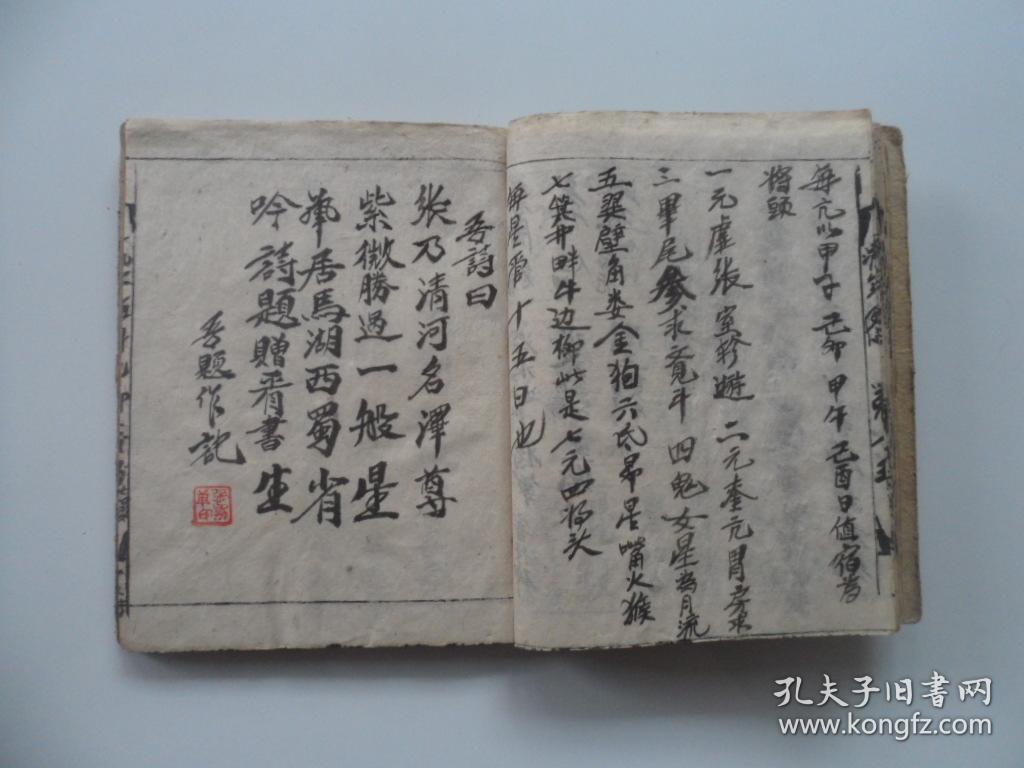 每元以甲子己卯甲午己酉日值宿为
將頭
一元虚张室轸遊二元奎亢胃房東
三畢尾参求竟斗四鬼女星為月流
五翼壁角娄金狗六氐昴星嘴火猴
七箕井畔牛边柳此是七元四将头
每星管十五日也
吾詩曰
張乃清河名澤尊
紫微勝過一般星
筆居馬湖西蜀省
吟詩題贈看書生
吾題作記
孔夫子旧书网
www.kongfz.com